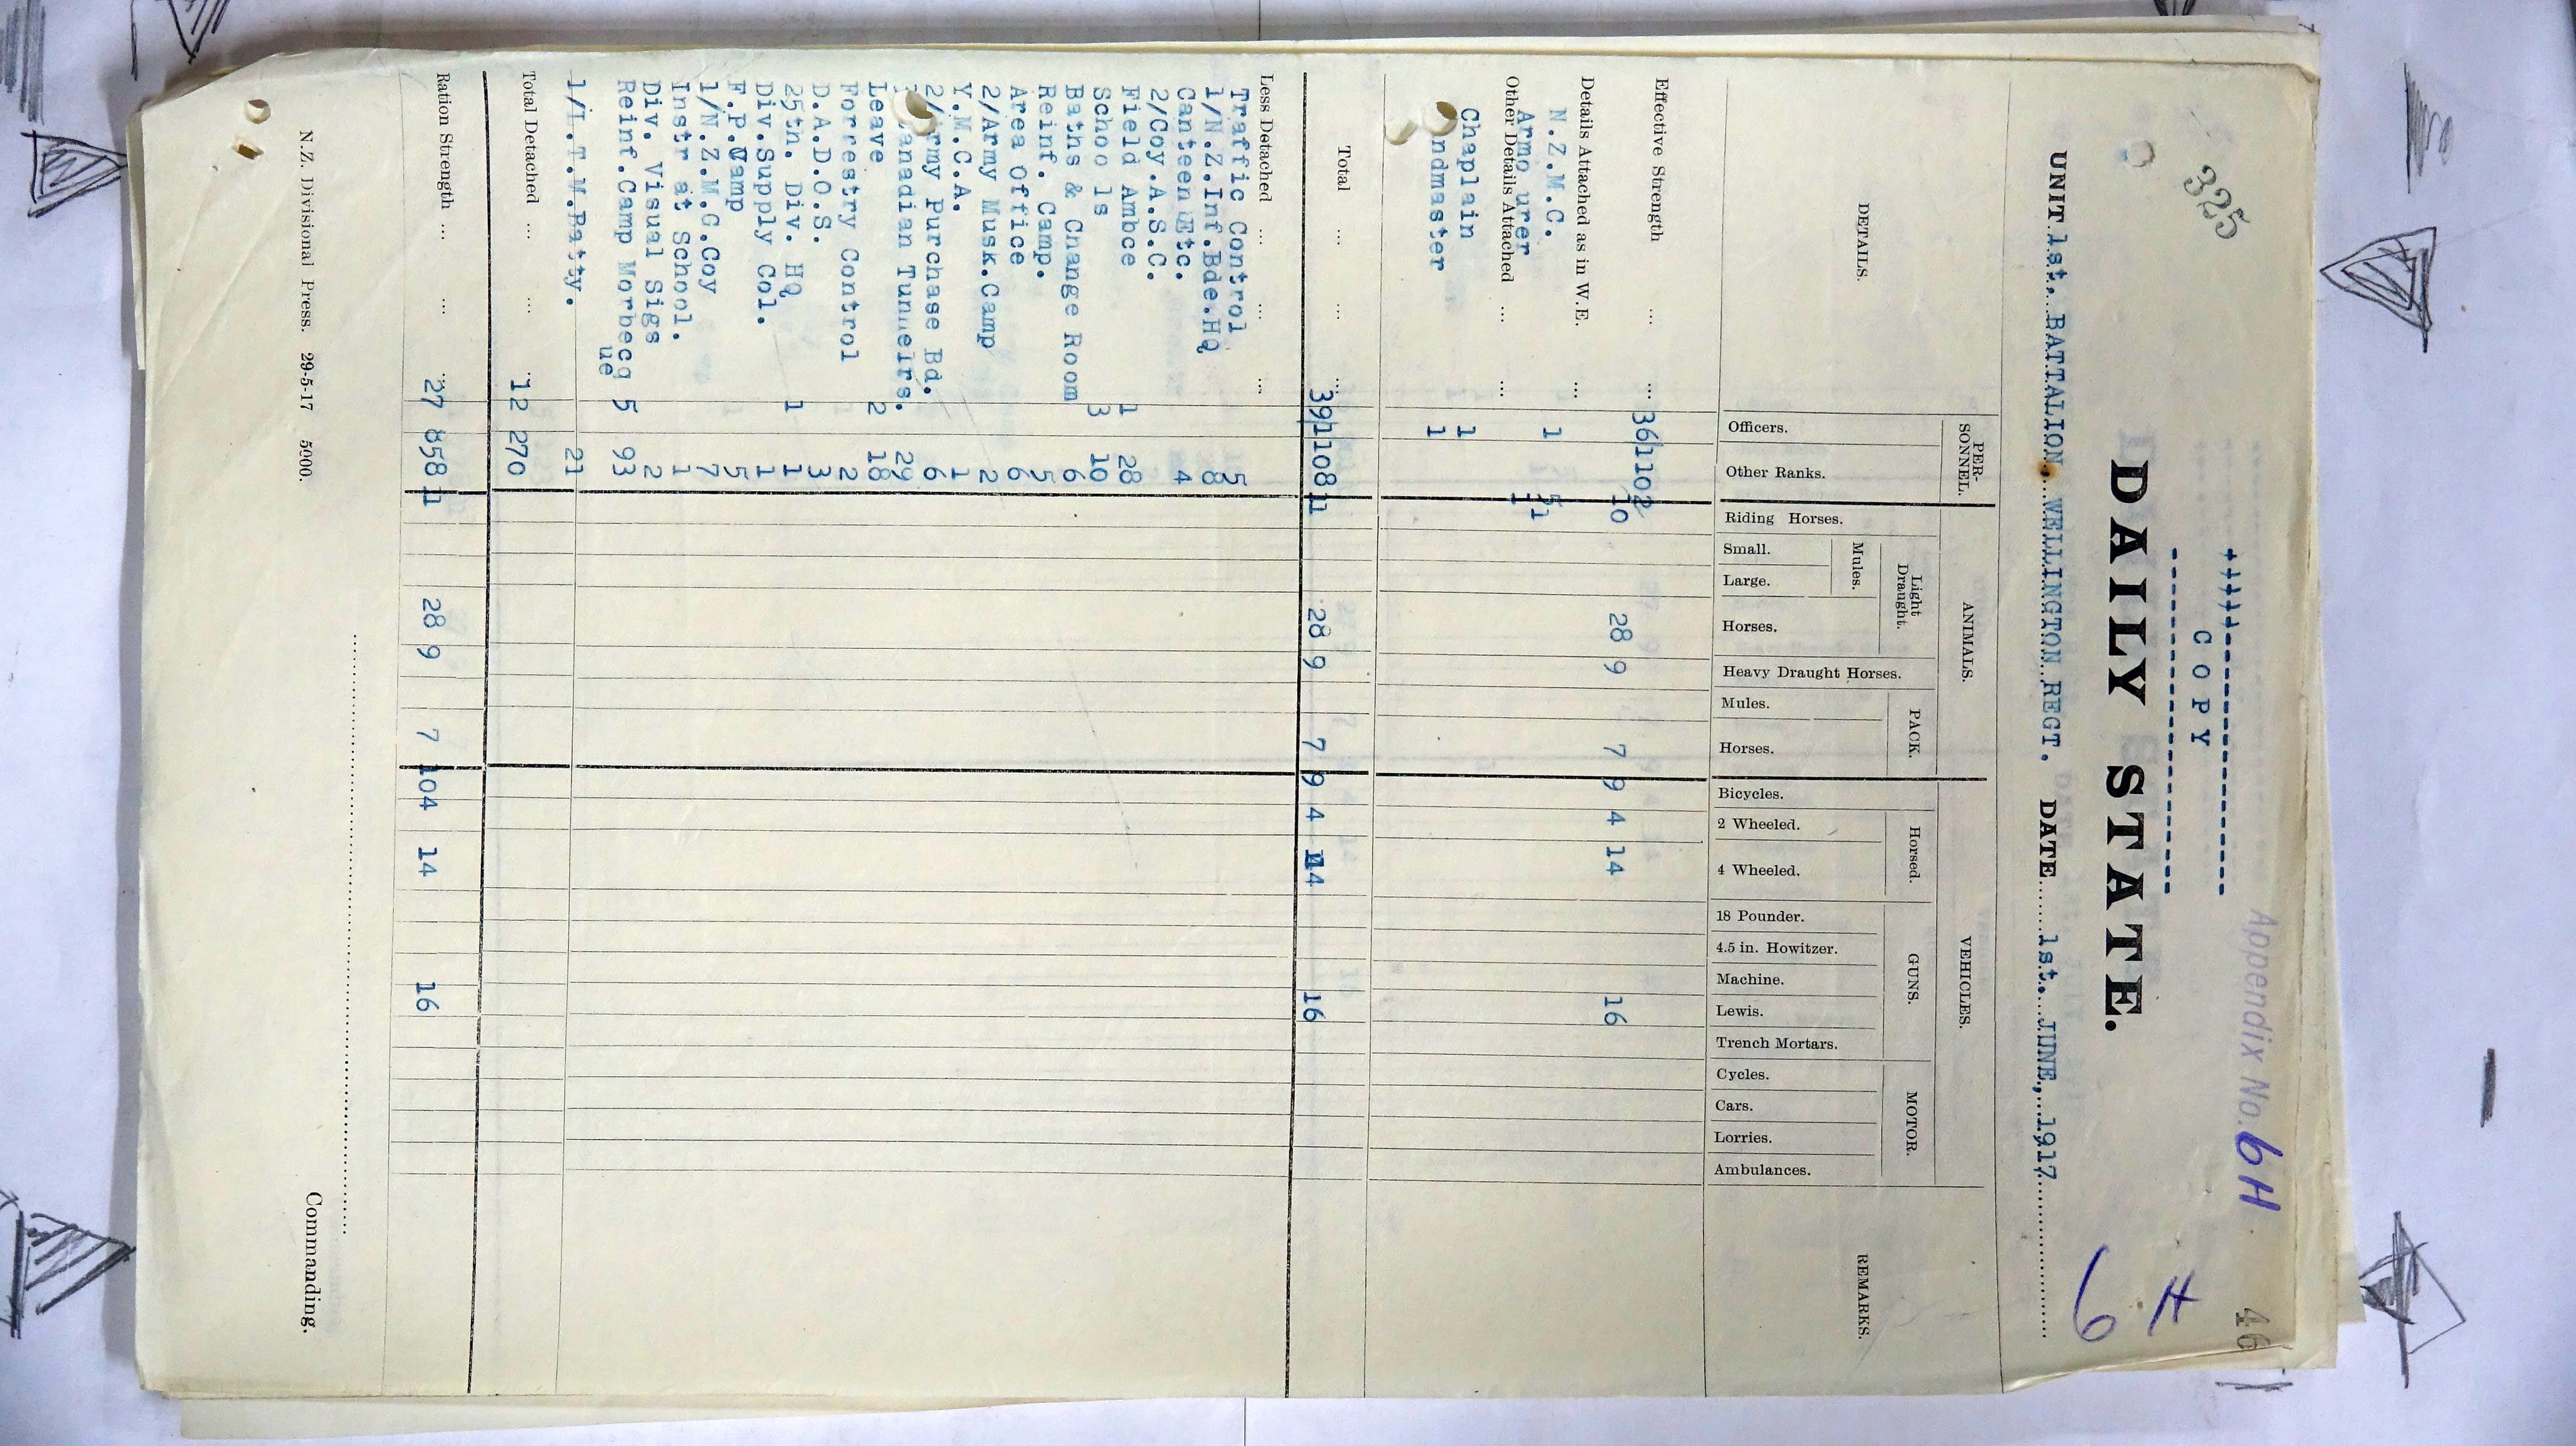 325
46
Appendix No. 6H
6 H
COPY
DAILY STATE.
UNIT 1st. BATTALION. WELLINGTON REGT. DATE 1st. JUNE, 1917
DETAILS. PER-SONNEL. ANIMALS. VEHICLES. REMARKS.
Light Draught. PACK. Horsed. GUNS. MOTOR.
Mules.
Officers. Other Ranks. Riding Horses. Small. Large. Horses. Heavy Draught Horses. Mules. Horses. Bicycles. 2 Wheeled. 4 Wheeled. 18 Pounder. 4.5 in. Howitzer. Machine. Lewis. Trench Mortars. Cycles. Cars. Lorries. Ambulances.
Effective Strength ... ... 36 1102 10 28 9 7 9 4 14 16
Details Attached as in W.E. ...
N.Z.M.C. 1 5 1
Armo urer 1
Other Details Attached ... ...
Chaplain 1
ndmaster 1
Total ... ... ... 39 1108 11 28 9 7 9 4 14 16
Less Detached ... ... ...
Traffic Control 5
1/N.Z.Inf.Bde.HQ 8
Canteen Etc. 4
2/Coy.A.S.C.
Field Ambce 1 28
Schoo ls 3 10
Baths & Change Room 6
Reinf. Camp. 5
Area Office 6
2/Army Musk.Camp 2
Y.M.C.A. 1
2/Army Purchase Bd. 6
anadian Tunnelrs. 29
Leave 2 18
Forrestry Control 2
D.A.D.O.S. 3
25th. Div. HQ 1 1
Div.Supply Col. 1
F.P.Camp 5
1/N.Z.M.G.Coy 7
Instr at School. 1
Div. Visual Sigs 2
Reinf.Camp Morbecq 5 93
ue
1/L.T.M.Batty. 21
Total Detached ... ... ... 12 270
Ration Strength ... ... ... 27 858 11 28 9 7 10 4 14 16
Commanding.
N.Z. Divisional Press. 29-5-17 5000.